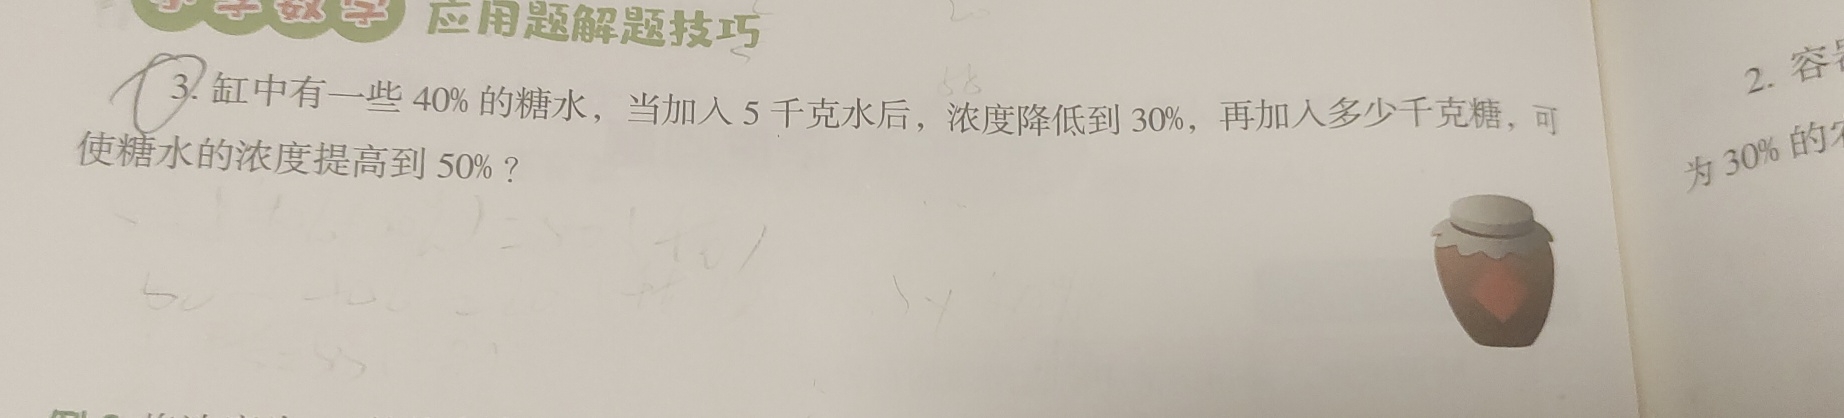 小学数学 应用题解题技巧
3. 缸中有一些 40% 的糖水，当加入 5 千克水后，浓度降低到 30%，再加入多少千克糖，可
使糖水的浓度提高到 50%？
2. 容
为 30% 的